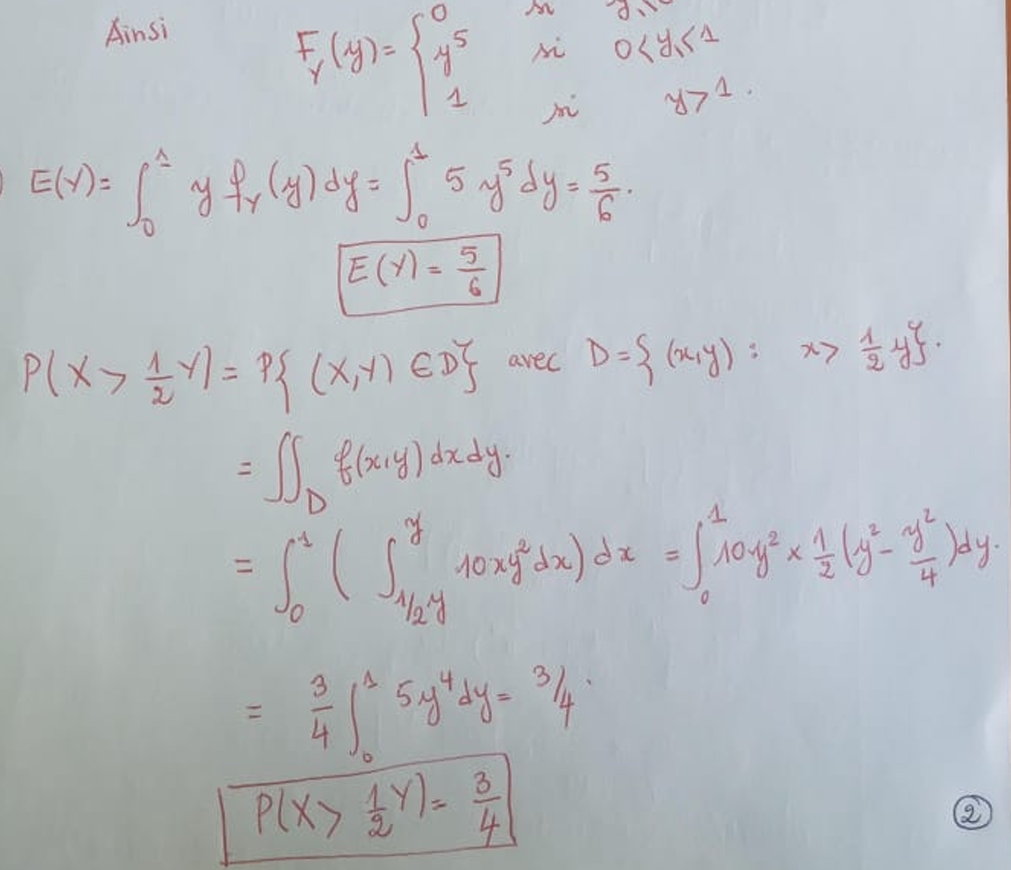 0 si
Ainsi F_Y(y) = { y⁵ si 0<y≤1
1 si y>1.
) E(Y) = ∫₀¹ y f_Y(y) dy = ∫₀¹ 5 y⁵ dy = 5/6.
E(Y) = 5/6
P(X > 1/2 Y) = P{ (X,Y) ∈ D } avec D = { (x,y) : x > 1/2 y }.
= ∬_D f(x,y) dx dy.
= ∫₀¹ ( ∫_{1/2 y}^{y} 10xy² dx ) dx = ∫₀¹ 10y² × 1/2 (y² - y²/4) dy.
= 3/4 ∫₀¹ 5y⁴ dy = 3/4.
P(X > 1/2 Y) = 3/4
2